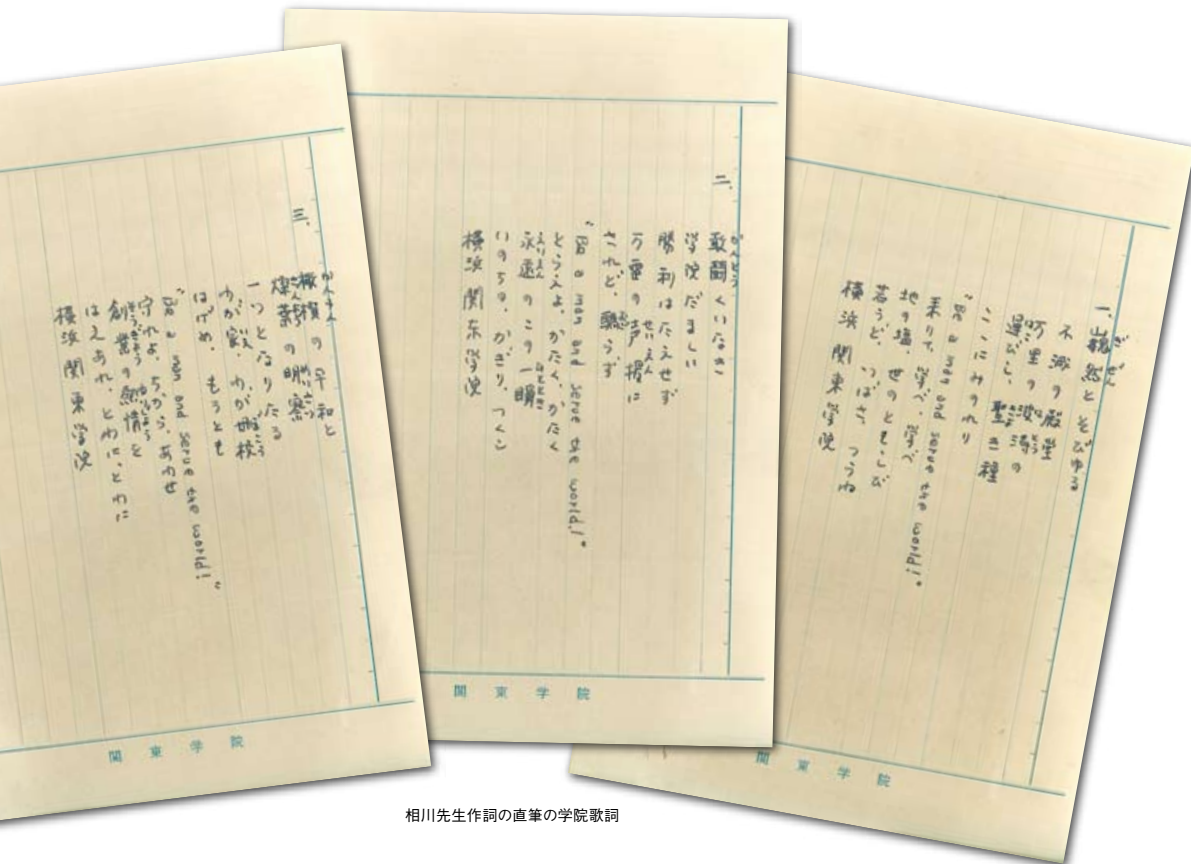 一、巍然とそびゆる
不滅の殿堂
万里の波濤の
運びし、聖き種
ここにみのれり
"Be a man and serve the world!"
来りて、学べ、学べ
地の塩、世のともしび
若うど、つばさ、つらね
横浜関東学院
関東学院
二、敢闘くいなき
学院だましい
勝利はたえせず
万雷の声援に
されど、驕らず
"Be a man and serve the world!"
とらえよ、かたく、かたく
永遠のこの一瞬
いのちの、かぎり、つくし
横浜関東学院
関東学院
三、橄欖の平和と
燦葉の明察
一つとなりたる
わが家、わが母校
はげめ、もろとも
"Be a man and serve the world!"
守れよ、ちから、あわせ
創業の熱情を
はえあれ、とわに、とわに
横浜関東学院
関東学院
相川先生作詞の直筆の学院歌詞